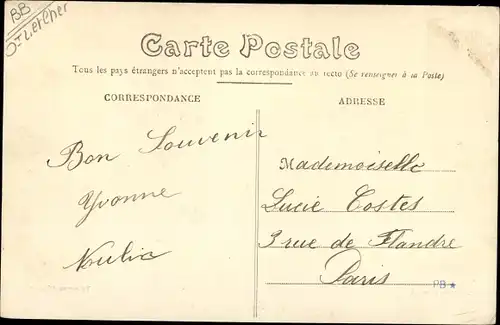 BB
Carte Postale
Tous les pays étrangers n'acceptent pas la correspondance au recto (Se renseigner à la Poste)
CORRESPONDANCE
ADRESSE
Bon Souvenir
Yvonne
Mademoiselle
Lucie Costes
3 rue de Flandre
Paris
PB